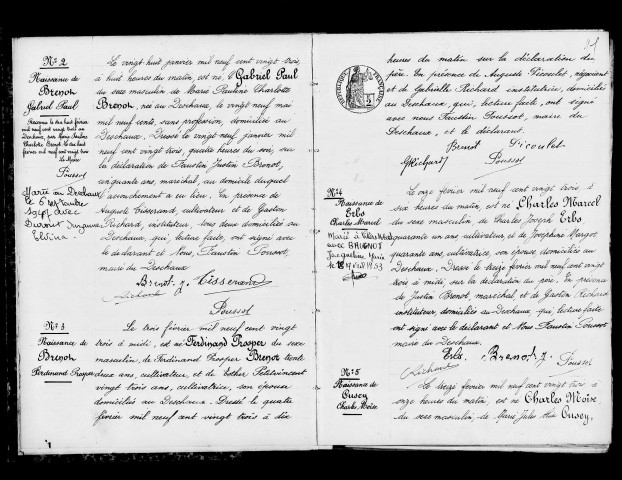 N° 2
Naissance de
Brenot
Gabriel Paul
Reconnu le dix huit février
mil neuf cent vingt trois au
Deschaux, par Marie Pauline
Charlotte Brenot le dix huit
février mil neuf cent vingt trois
Le Maire
Poussot
Marié au Deschaux
le 6 septembre
avec
Elvina
Le vingt huit janvier mil neuf cent vingt trois,
à huit heures du matin, est né, Gabriel Paul
du sexe masculin, de Marie Pauline Charlotte
Brenot, née au Deschaux, le vingt neuf mai
mil neuf cent, sans profession, domiciliée au
Deschaux. Dressé le vingt neuf janvier mil
neuf cent vingt trois, quatre heures du soir, sur
la déclaration de Faustin Justin Brenot,
cinquante ans, maréchal, au domicile duquel
l'accouchement a eu lieu. En présence de
Auguste Tisserand, cultivateur, et de Gaston
Richard, instituteur, tous deux domiciliés au
Deschaux, qui, lecture faite, ont signé avec
le déclarant et Nous, Faustin Poussot,
maire du Deschaux
Brenot. J. Tisserand
Richard
Poussot
N° 3
Naissance de
Brenot
Ferdinand Prosper
Le trois février mil neuf cent vingt
trois à midi, est né Ferdinand Prosper du sexe
masculin, de Ferdinand Prosper Brenot trente
deux ans, cultivateur, et de Esther
vingt trois ans, cultivatrice, son épouse
domiciliés au Deschaux. Dressé le quatre
février mil neuf cent vingt trois à dix
heures du matin sur la déclaration du
père. En présence de Auguste Picoulet, négociant
et de Gabrielle Richard institutrice, domiciliés
au Deschaux, qui, lecture faite, ont signé
avec nous Faustin Poussot, maire du
Deschaux, et le déclarant.
Brenot Picoulet
G Richard
Poussot
N° 4
Naissance de
Erbs
Charles Marcel
Marié à
avec BRUGNOT
Jacqueline Marie
le 1953
Le onze février mil neuf cent vingt trois à
six heures du matin, est né Charles Marcel
du sexe masculin, de Charles Joseph Erbs
quarante un ans cultivateur et de Joséphine Margot,
quarante ans, cultivatrice, son épouse, domiciliés au
Deschaux. Dressé le treize février mil neuf cent vingt
trois à midi, sur la déclaration du père. En présence
de Justin Brenot, maréchal, et de Gaston Richard
instituteur, domiciliés au Deschaux, qui, lecture faite
ont signé avec le déclarant et Nous, Faustin Poussot
maire du Deschaux.
Erbs Brenot. J. Poussot
Richard
N° 5
Naissance de
Cusey
Charles Moïse
Le treize février mil neuf cent vingt trois à
onze heures du matin, est né Charles Moïse
du sexe masculin, de Marie Jules Cusey,